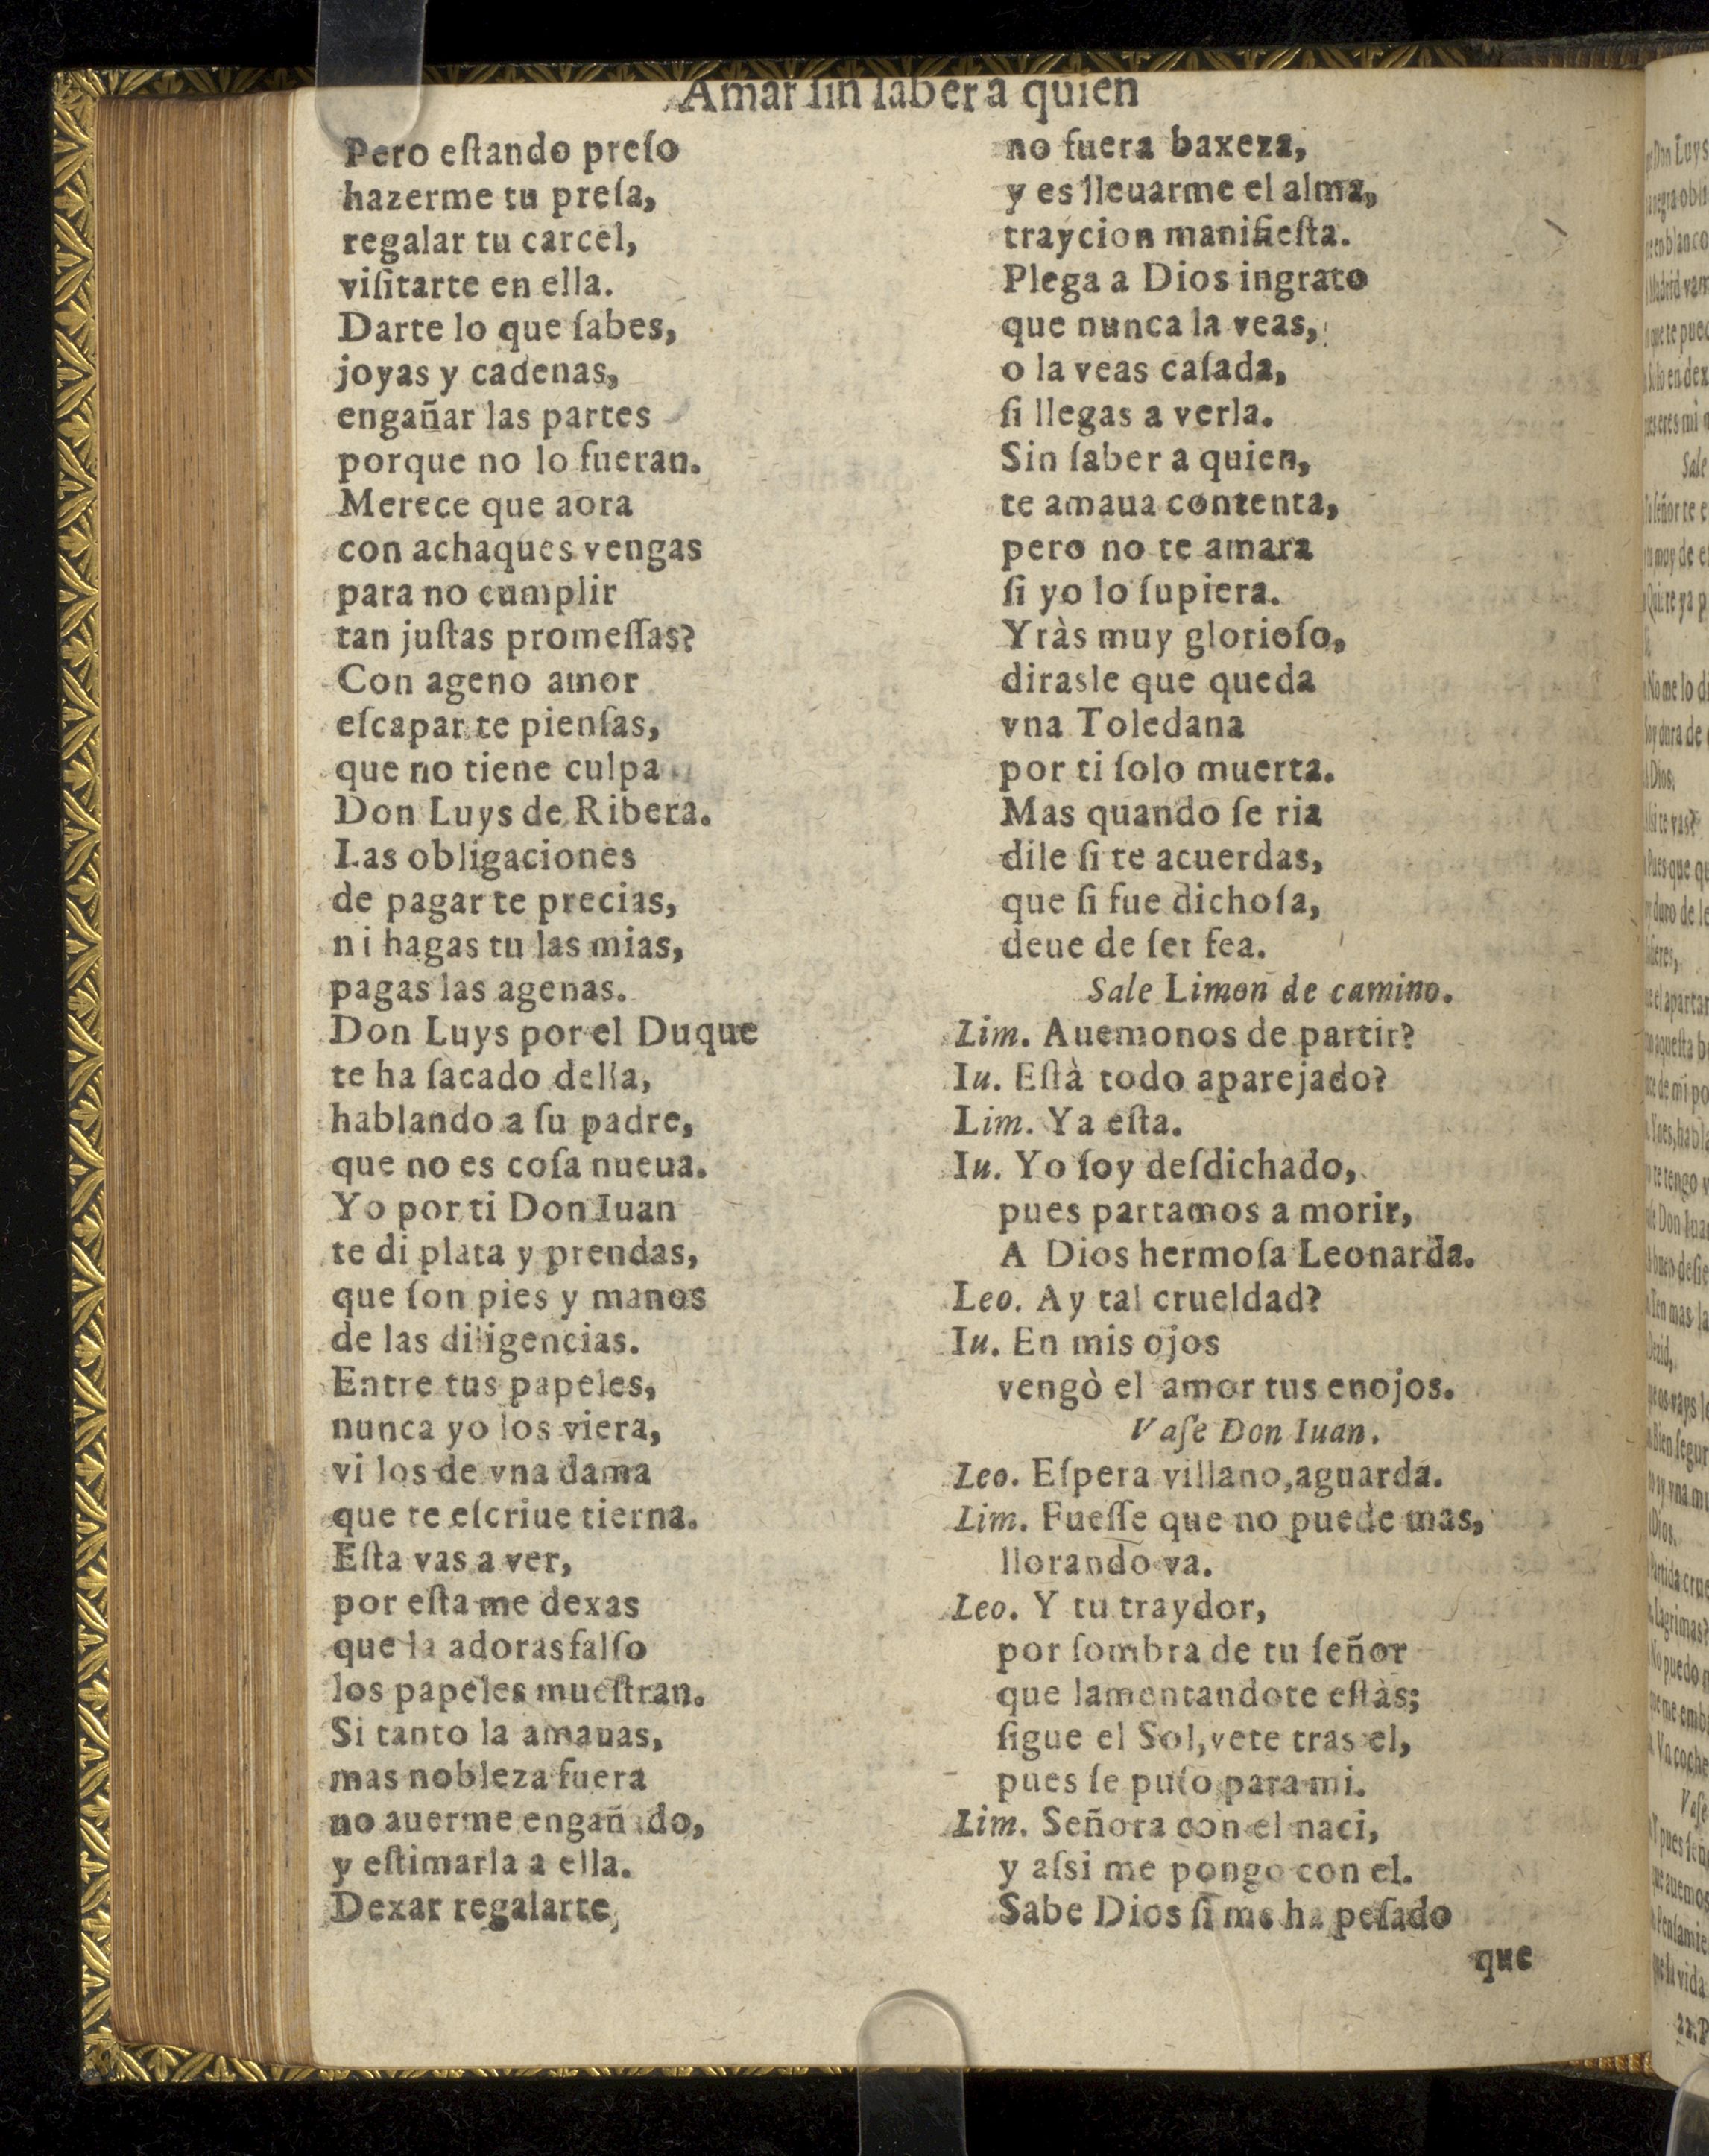 Amar ſin ſaber a quien
Pero eſtando preſo
hazerme tu preſa,
regalar tu carcel,
viſitarte en ella.
Darte lo que ſabes,
joyas y cadenas,
engañar las partes
porque no lo fueran.
Merece que aora
con achaques vengas
para no cumplir
tan juſtas promeſſas?
Con ageno amor
eſcapar te pienſas,
que no tiene culpa
Don Luys de Ribera.
Las obligaciones
de pagar te precias,
ni hagas tu las mias,
pagas las agenas.
Don Luys por el Duque
te ha ſacado della,
hablando a ſu padre,
que no es coſa nueua.
Yo por ti Don Iuan
te di plata y prendas,
que ſon pies y manos
de las diligencias.
Entre tus papeles,
nunca yo los viera,
vi los de vna dama
que te eſcriue tierna.
Eſta vas a ver,
por eſta me dexas
que la adoras falſo
los papeles mueſtran.
Si tanto la amauas,
mas nobleza fuera
no auerme engañado,
y eſtimarla a ella.
Dexar regalarte,
no fuera baxeza,
y es lleuarme el alma,
traycion manifieſta.
Plega a Dios ingrato
que nunca la veas,
o la veas caſada,
ſi llegas a verla.
Sin ſaber a quien,
te amaua contenta,
pero no te amara
ſi yo lo ſupiera.
Yràs muy glorioſo,
dirasle que queda
vna Toledana
por ti ſolo muerta.
Mas quando ſe ria
dile ſi te acuerdas,
que ſi fue dichoſa,
deue de ſer fea.
Sale Limon de camino.
Lim. Auemonos de partir?
Iu. Eſtà todo aparejado?
Lim. Ya eſta.
Iu. Yo ſoy deſdichado,
pues partamos a morir,
A Dios hermoſa Leonarda.
Leo. Ay tal crueldad?
Iu. En mis ojos
vengò el amor tus enojos.
Vaſe Don Iuan.
Leo. Eſpera villano, aguarda.
Lim. Fueſſe que no puede mas,
llorando va.
Leo. Y tu traydor,
por ſombra de tu ſeñor
que lamentandote eſtàs;
ſigue el Sol, vete tras el,
pues ſe puſo para mi.
Lim. Señora con el naci,
y aſsi me pongo con el.
Sabe Dios ſi me ha peſado
que